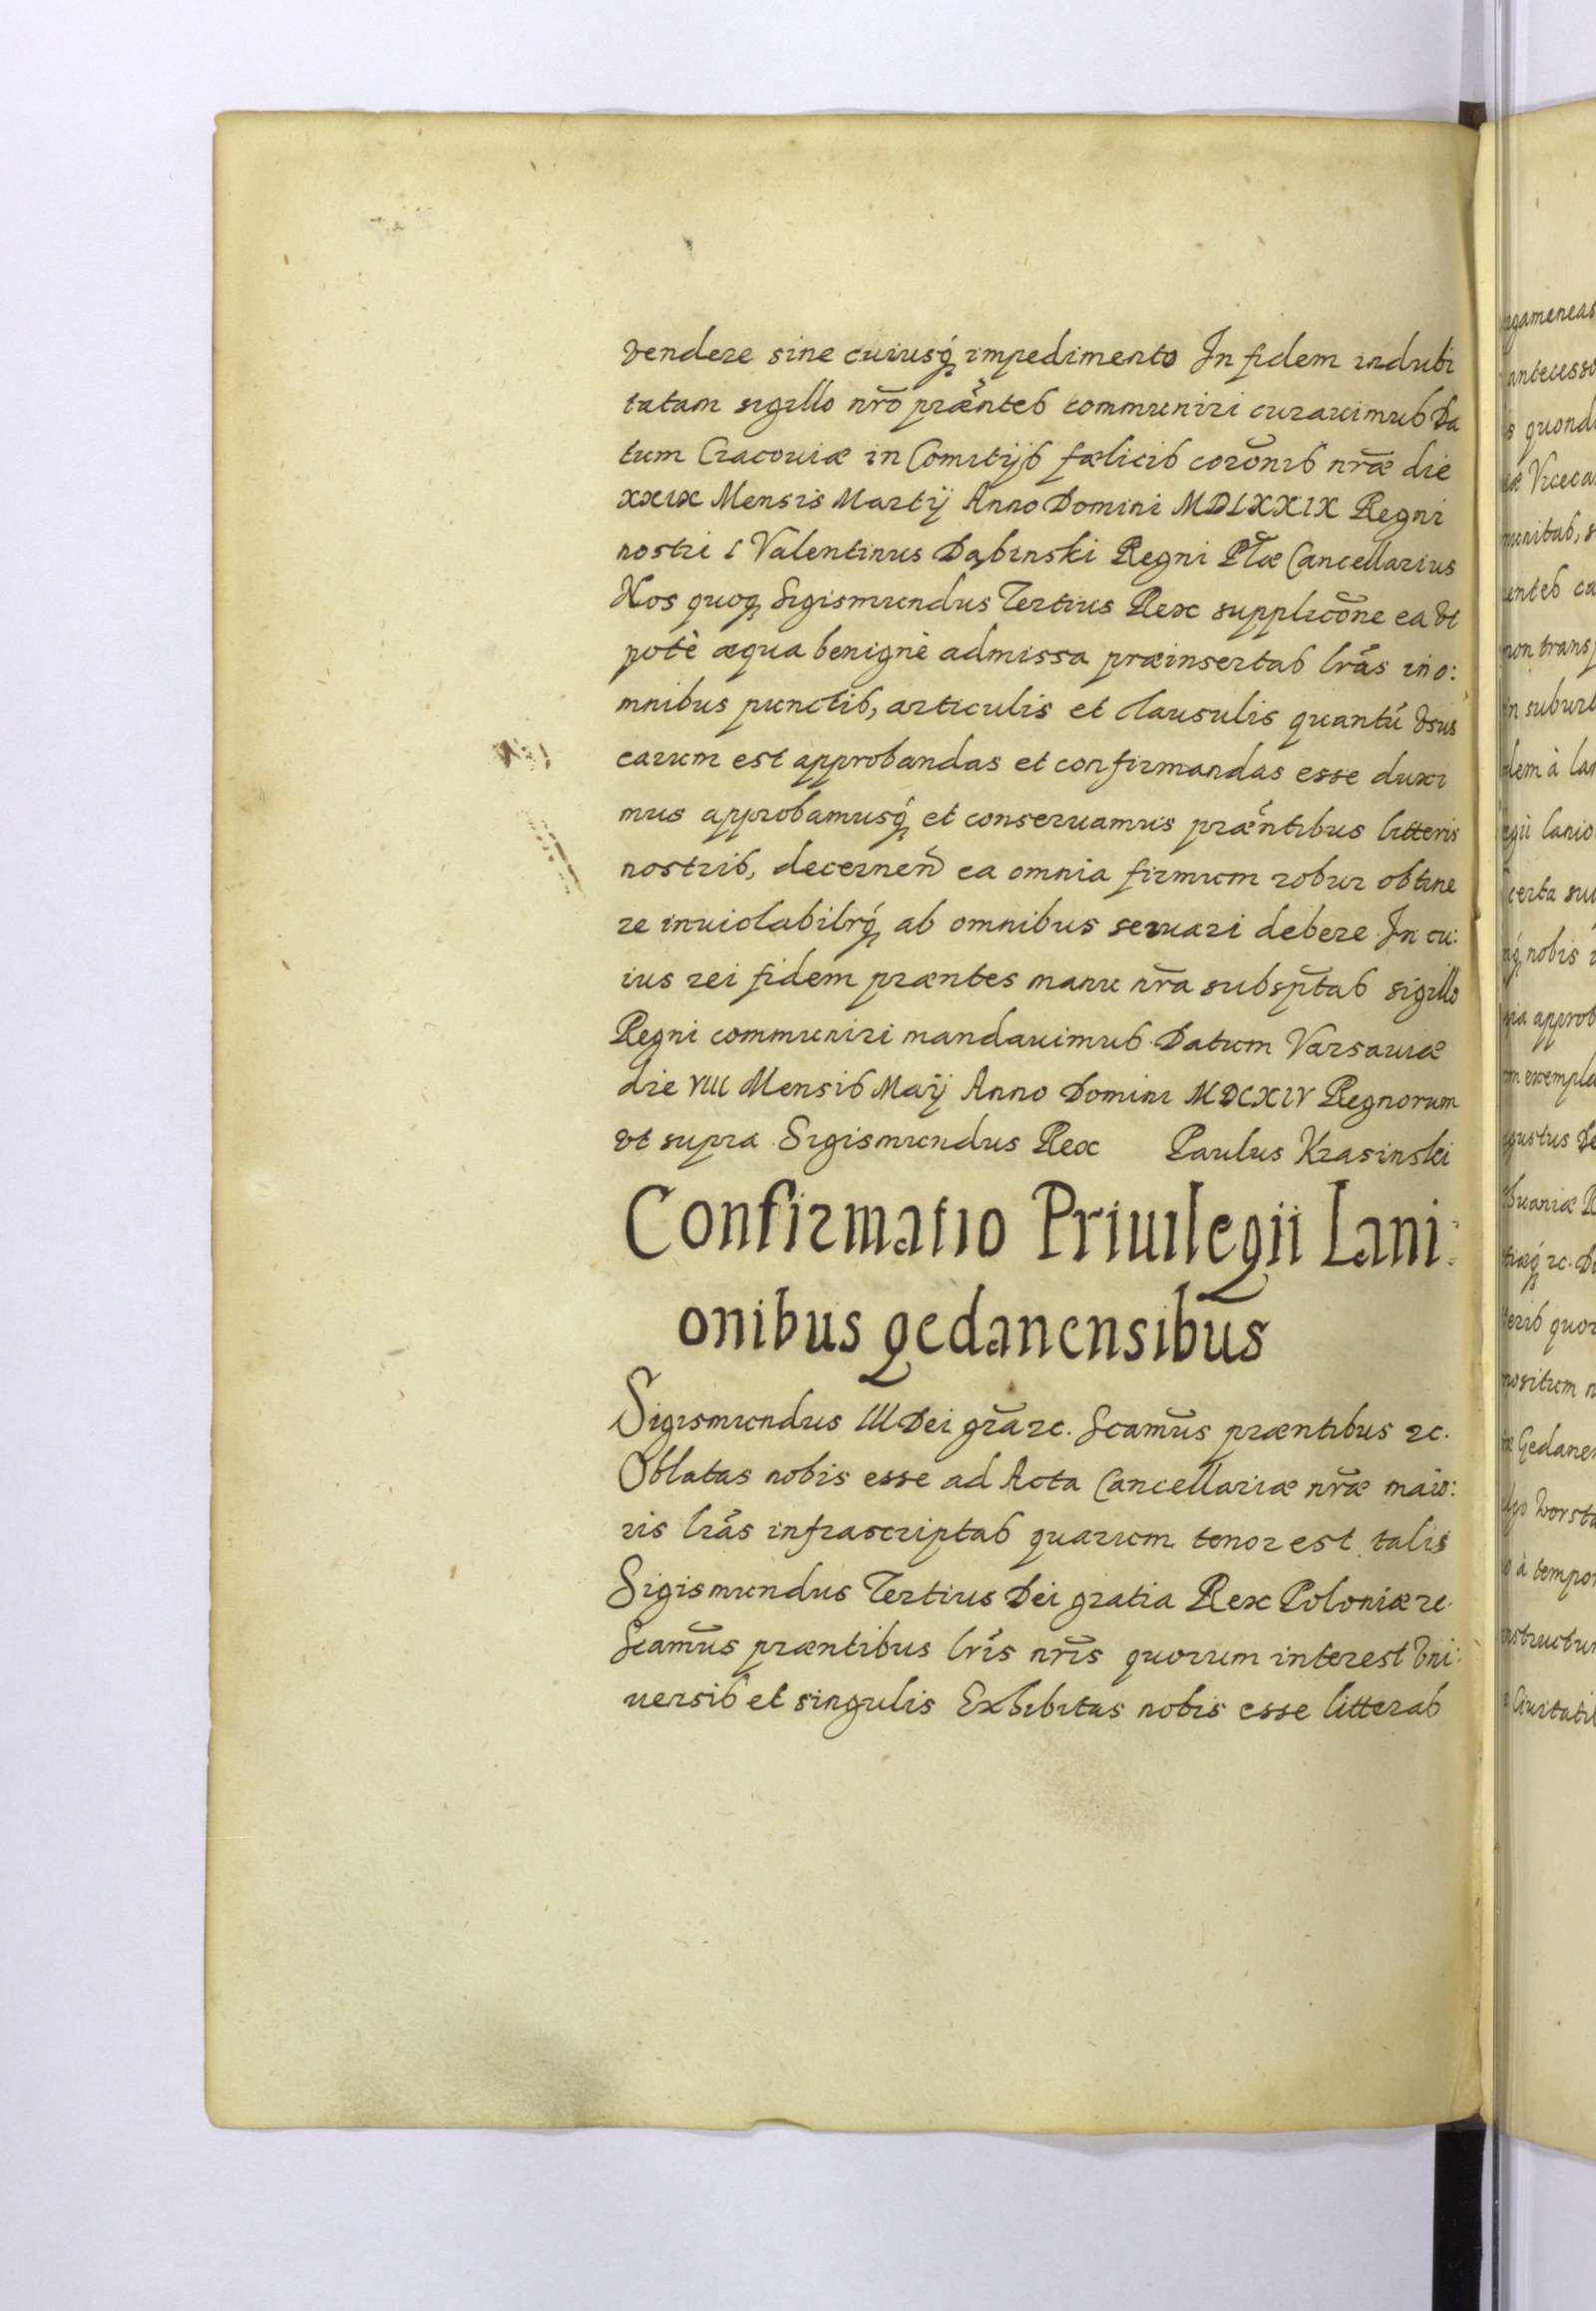 vendere sine cuiusq́; impedimento In fidem indubi
tatam sigillo nr̃o præñtes communiri curauimus Da
tum Cracouiæ in Comitijs fælicis corõnis nr̃æ die
xxix Mensis Martij Anno Domini MDLXXIX Regni
nostri 1 Valentinus Dąbinski Regni Pl̃æ Cancellarius
Nos quoq; Sigismundus Tertius Rex supplicõne ea vt
potè æqua benignè admissa præinsertas lr̃as in o:
mnibus punctis, articulis et clausulis quantú vsus
earum est approbandas et confirmandas esse duxi
mus approbamusq́; et conseruamus præñtibus litteris
nostris, decerneñ ea omnia firmum robur obtine
re inuiolabilrq́; ab omnibus seruari debere. In cu:
ius rei fidem præntes manu nr̃a subsp̃tas sigillo
Regni communiri mandauimus. Datum Varsauiæ
die VIII Mensis Maij Anno Domini MDCXIV Regnorum
vt supra. Sigismundus Rex Paulus Krasinski
Confirmatio Priuilegii Lani:
onibus gedanensibus
Sigismundus III Dei gr̃a ꝛc. Scamũs præntibus ꝛc.
Oblatas nobis esse ad Acta Cancellariæ nr̃æ maio:
ris lr̃as infrascriptas quarum tenor est talis
Sigismundus Tertius Dei gratia Rex Poloniæ ꝛc.
Scamũs præntibus lr̃is nr̃is quorum interest vni:
uersis et singulis Exhibitas nobis esse litteras